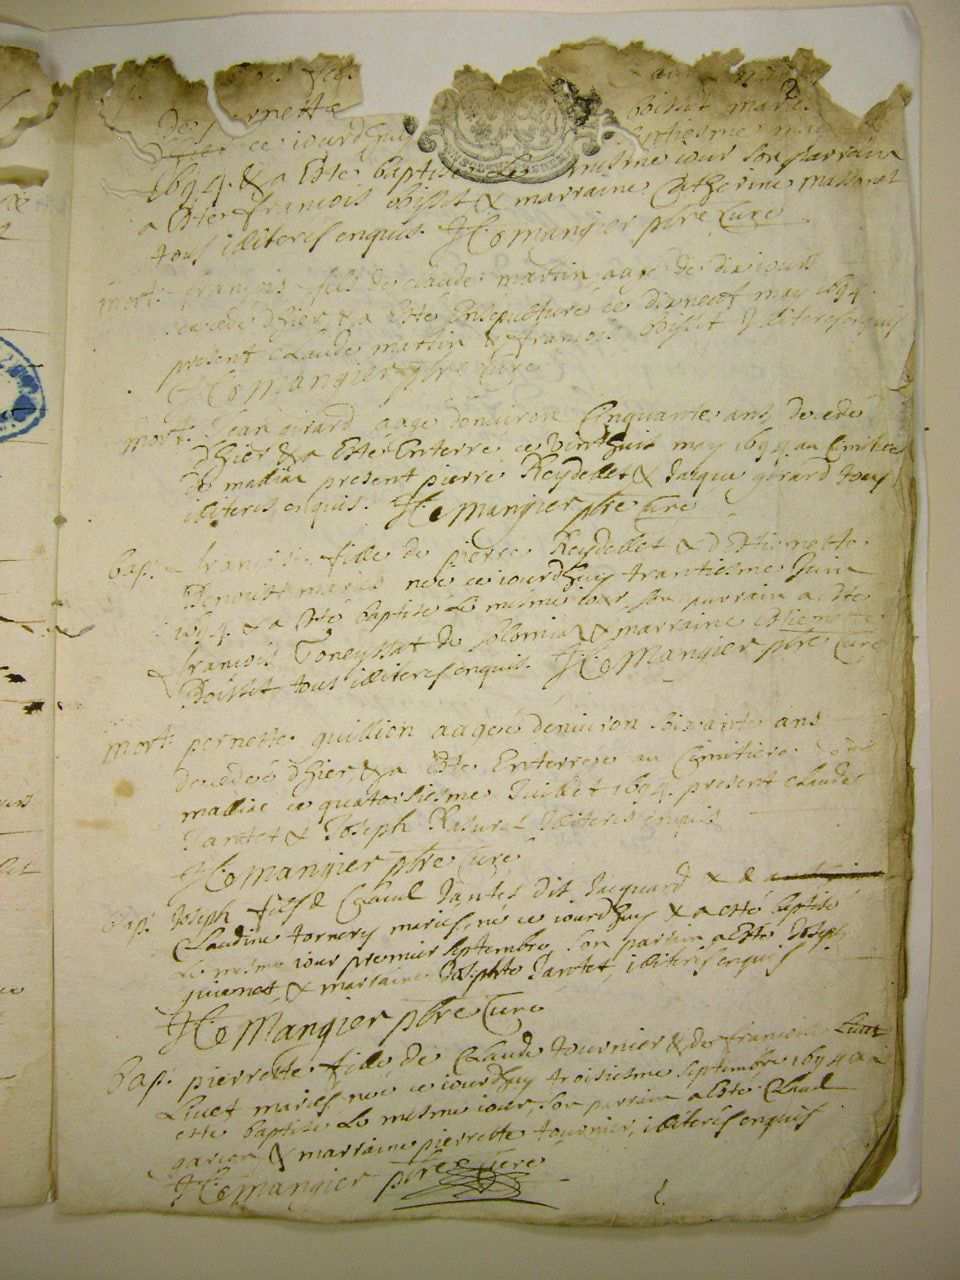 pernette boisit mari
ce jourdhuy
1694 & a Este baptise Le mesme iour son parrain
a Este francois boissit & marraine Catherine
tous illiteres enquis. Mangier pbre Cure
mort. françois fils de claude martin aagé de dix iours
decede dhier & a Esté Ensepulturé ce dixneuf may 1694
present claude martin & francois boissit Illiteres enquis
Mangier pbre Cure
mort. Jean girard aagé denuiron Cinquante ans decede
dhier & a Esté Enterré ce vinthuit may 1694 au Cimitiere
de present pierre Reydellet & Jacque girard tous
illiteres enquis. Mangier pbre Cure
bap. françoise fille de pierre Reydellet & dEstiennette
mariés née ce iourdhuy trantiesme Juin
1694 & a Este baptisé Le mesme iour son parrain a Este
francois de & marraine Estienette
Boissit tous illiteres enquis. Mangier pbre Cure
mort. pernette quillion aageé denuiron soixante ans
decedeé dhier & a Este Enterreé au Cimitiere de
ce quatorsiesme Juillet 1694 present claude
& Joseph Illiteres enquis
Mangier pbre Cure
bap. Joseph fils d Claud dit Jacquard & d
Claudine tornery mariés, né ce iourdhuy & a esté baptisé
Le mesme iour premier septembre, son parrain a Este Joseph
& marraine Josephte illiteres enquis
Mangier pbre Cure
bap. pierrette fille de Claude tournier & de francoise
Liuet mariés née ce iourdhuy troisiesme septembre 1694 & a
esté baptisé Le mesme iour, son parrain a Este Claud
& marraine pierrette tournier, illiteres enquis
Mangier pbre Cure